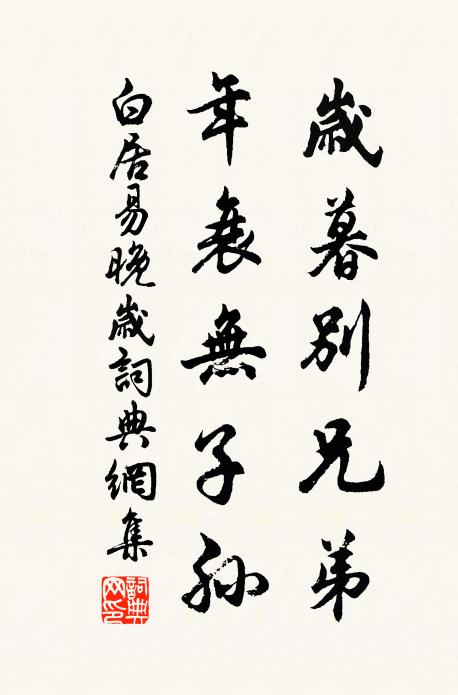 歲暮別兄弟
年衰無子孫
白居易晚歲詞典網集
詞典網印